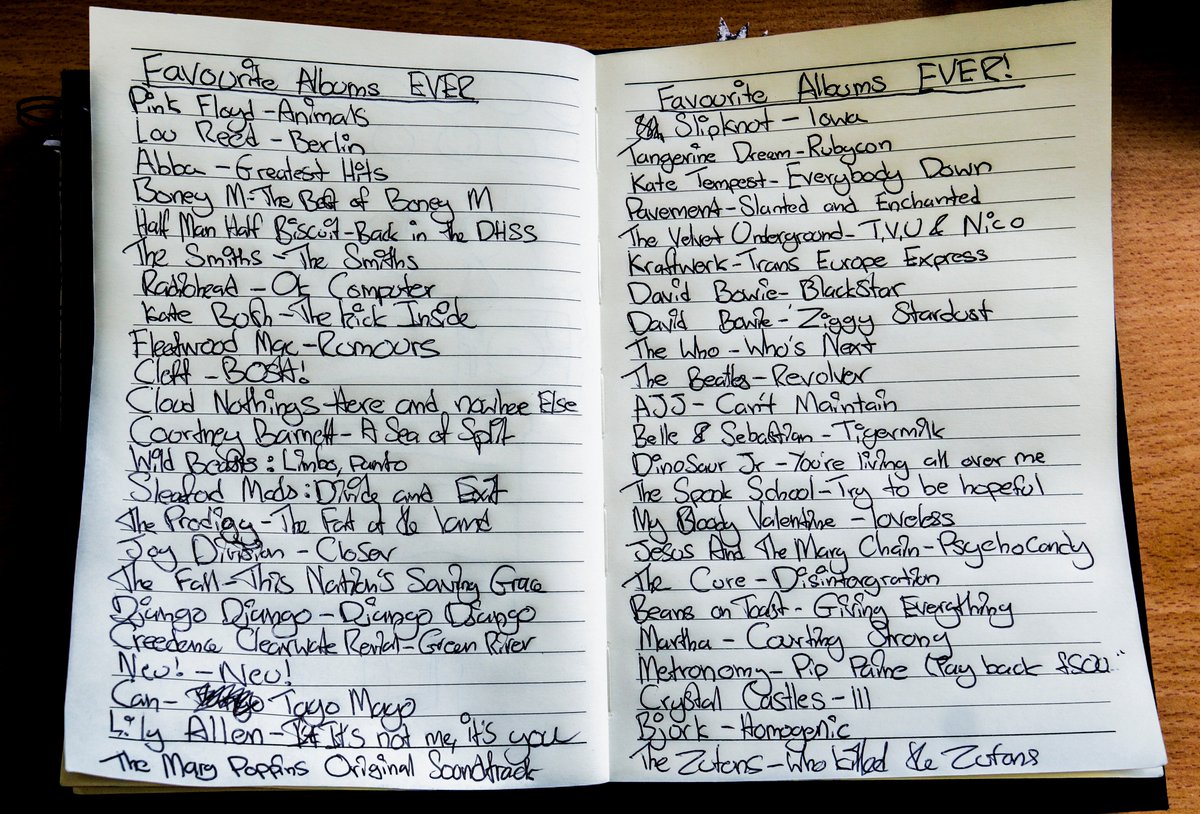 Favourite Albums EVER
Pink Floyd - Animals
Lou Reed - Berlin
Abba - Greatest Hits
Boney M - The Best of Boney M
Half Man Half Biscuit - Back in the DHSS
The Smiths - The Smiths
Radiohead - Ok Computer
Kate Bush - The Kick Inside
Fleetwood Mac - Rumours
Cleft - BOSH!
Cloud Nothings - Here and nowhee Else
Courtney Barnett - A Sea of Split
Wild Beasts: Limbo, Panto
Sleaford Mods: Divide and Exit
The Prodigy - The Fat of the land
Joy Division - Closer
The Fall - This Nation's Saving Grace
Django Django - Django Django
Creedence Clearwate Revial - Green River
Neu! - Neu!
Can - Tago Mago
Lily Allen - It's not me, it's you
The Mary Poppins Original Soundtrack
Favourite Albums EVER!
Slipknot - Iowa
Tangerine Dream - Rubycon
Kate Tempest - Everybody Down
Pavement - Slanted and Enchanted
The Velvet Underground - T.V.U & Nico
Kraftwerk - Trans Europe Express
David Bowie - BlackStar
David Bowie - Ziggy Stardust
The Who - Who's Next
The Beatles - Revolver
AJJ - Can't Maintain
Belle & Sebastian - Tigermilk
Dinosaur Jr - You're living all over me
The Spook School - Try to be hopeful
My Bloody Valentine - loveless
Jesus And The Mary Chain - PsychoCandy
The Cure - Disintargration
Beans on Toast - Giving Everything
Martha - Courting Strong
Metronomy - Pip Paine (Pay back £5000"
Crystal Castles - III
Bjork - Homogenic
The Zutons - Who killed the Zutons